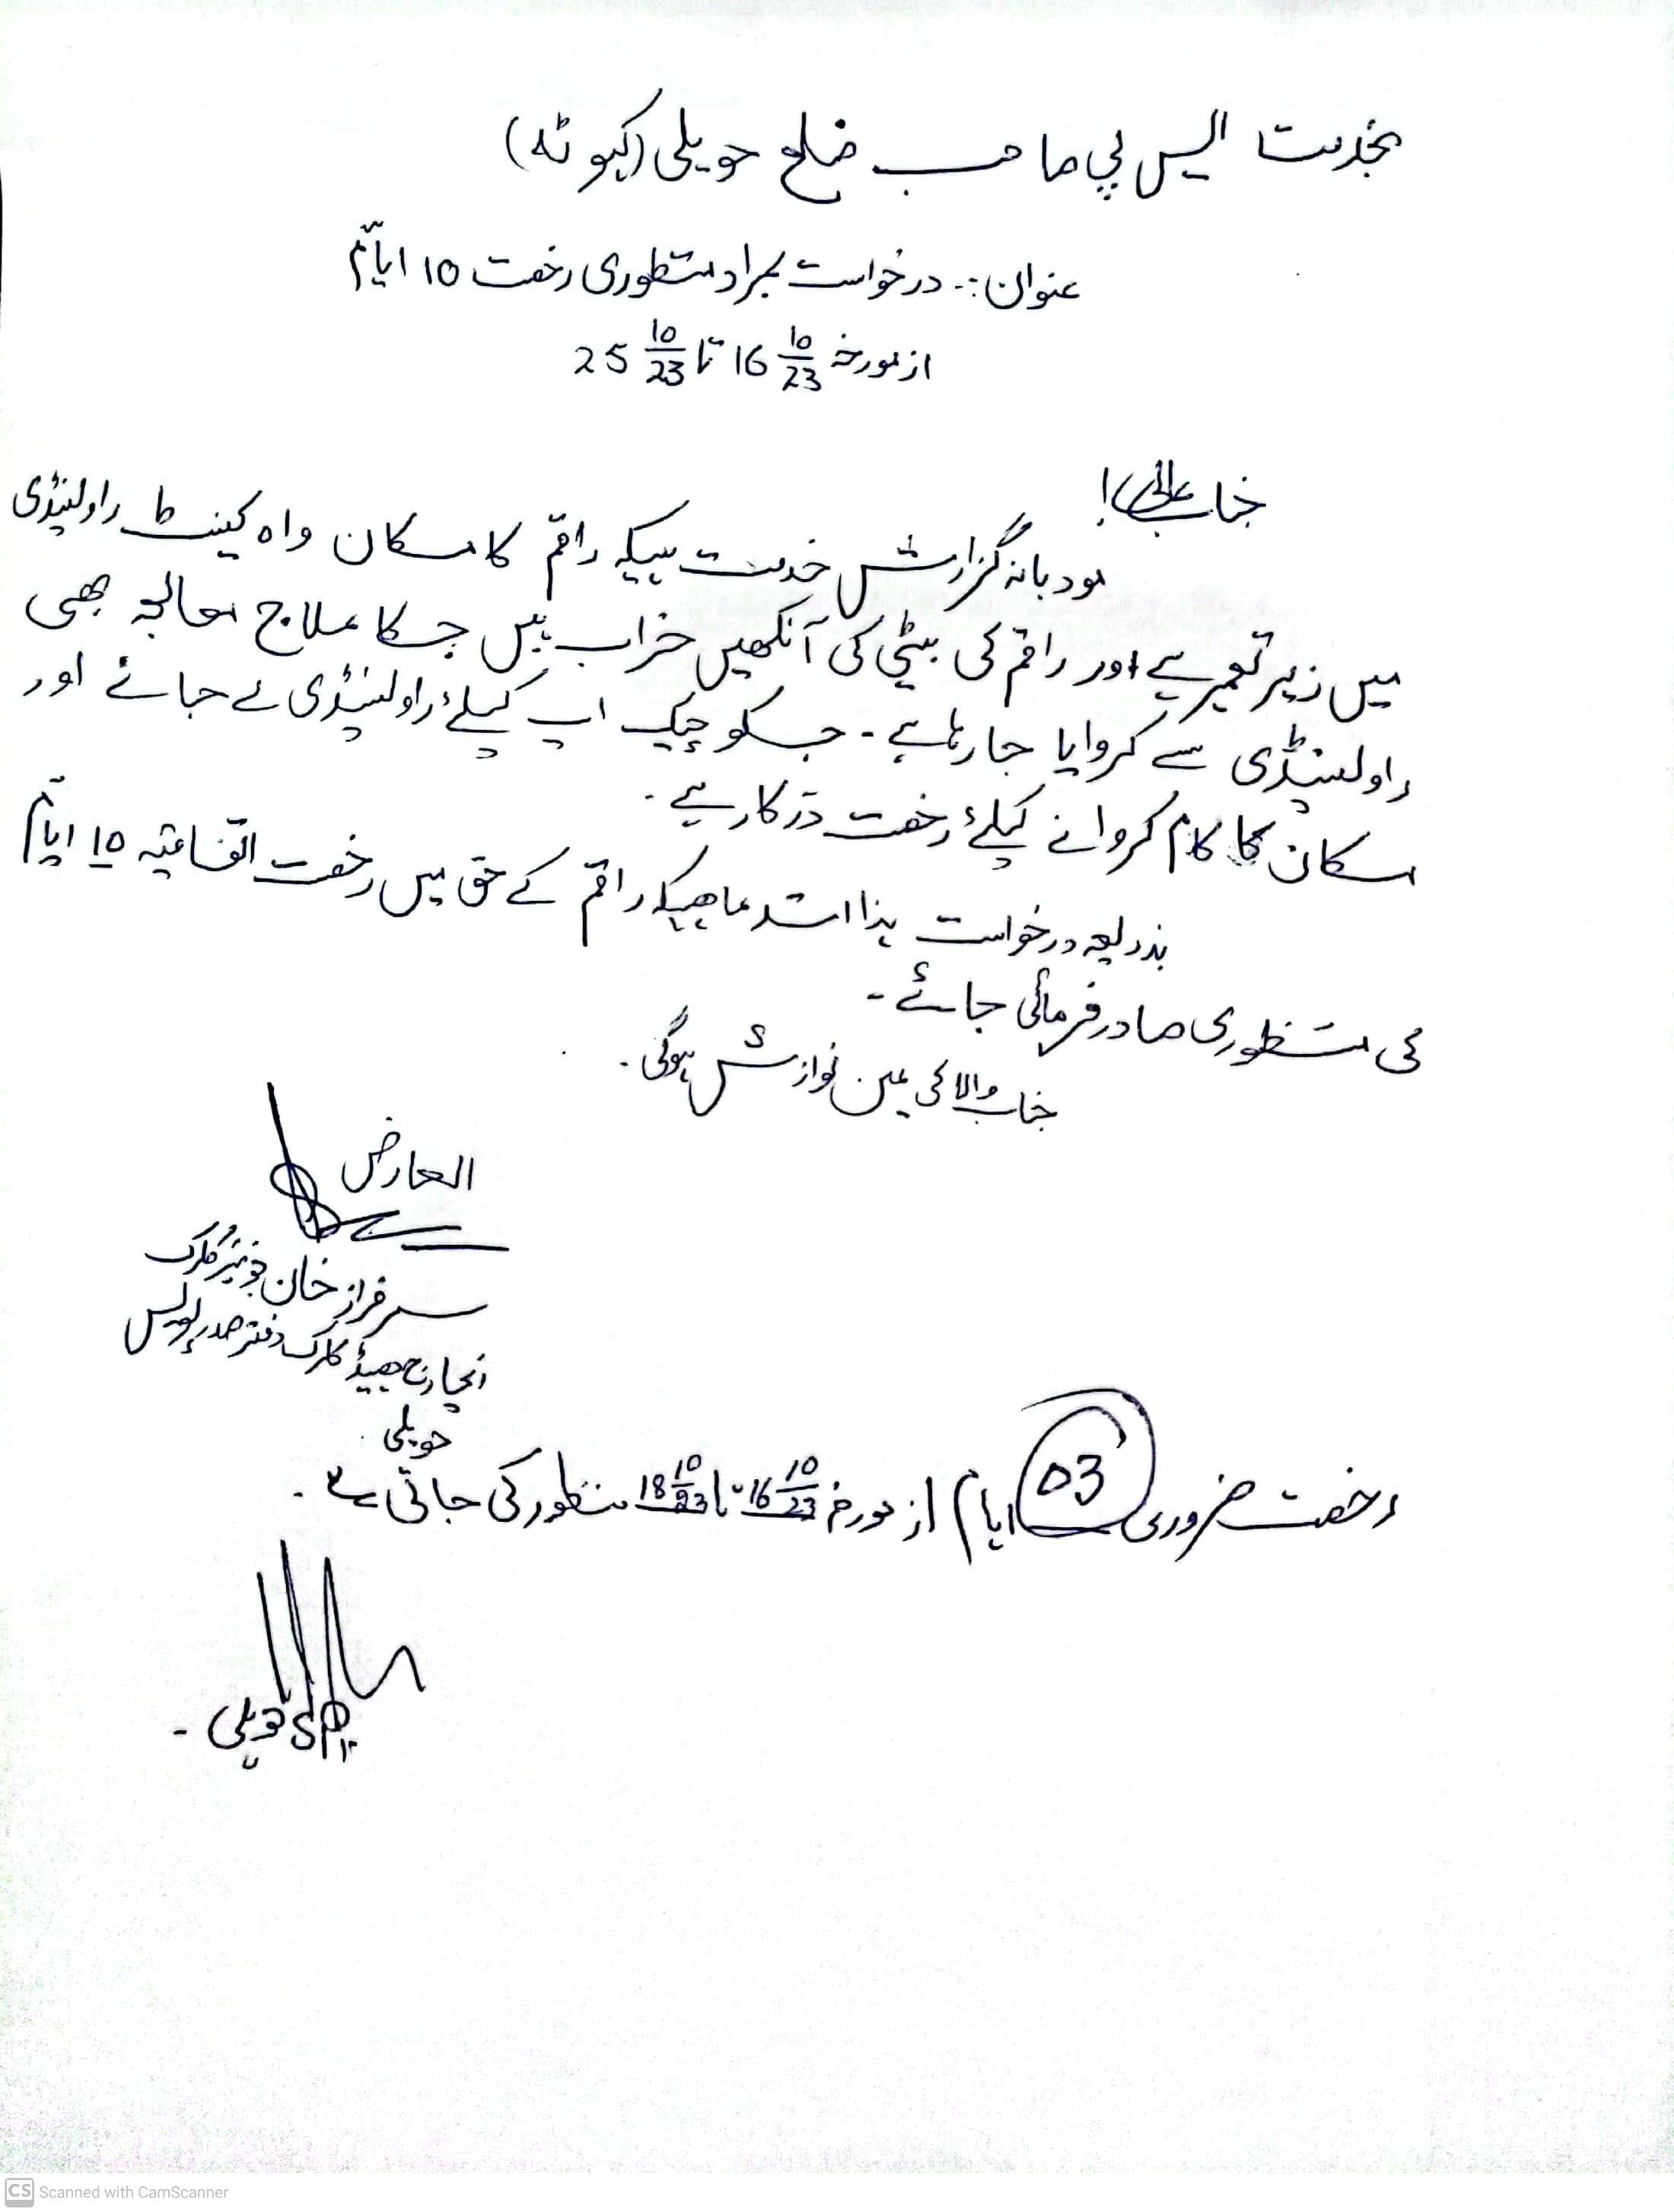 بخدمت ایس پی صاحب ضلع حویلی (کہوٹہ)
عنوان:۔ درخواست بمراد منظوری رخصت 10 ایّام
از مورخہ 16 10/23 تا 25 10/23
جناب عالی!
مودبانہ گزارش خدمت ہیکہ راقم کا مکان واہ کینٹ راولپنڈی
میں زیر تعمیر ہے اور راقم کی بیٹی کی آنکھیں خراب ہیں جسکا علاج معالجہ بھی
راولپنڈی سے کروایا جا رہا ہے۔ جسکو چیک اپ کیلئے راولپنڈی لے جانے اور
مکان کا کام کروانے کیلئے رخصت درکار ہے۔
بذریعہ درخواست ہذا استدعا ہیکہ راقم کے حق میں رخصت اتفاقیہ 10 ایّام
کی منظوری صادر فرمائی جائے۔
جناب والا کی عین نوازش ہوگی۔
العارض
سرفراز خان جونیئر کلرک
انچارج ہیڈ کلرک دفتر صدر پولیس
حویلی
رخصت ضروری 03 ایام از مورخہ 16 10/23 تا 18 10/23 منظور کی جاتی ہے۔
SP حویلی۔
CS Scanned with CamScanner